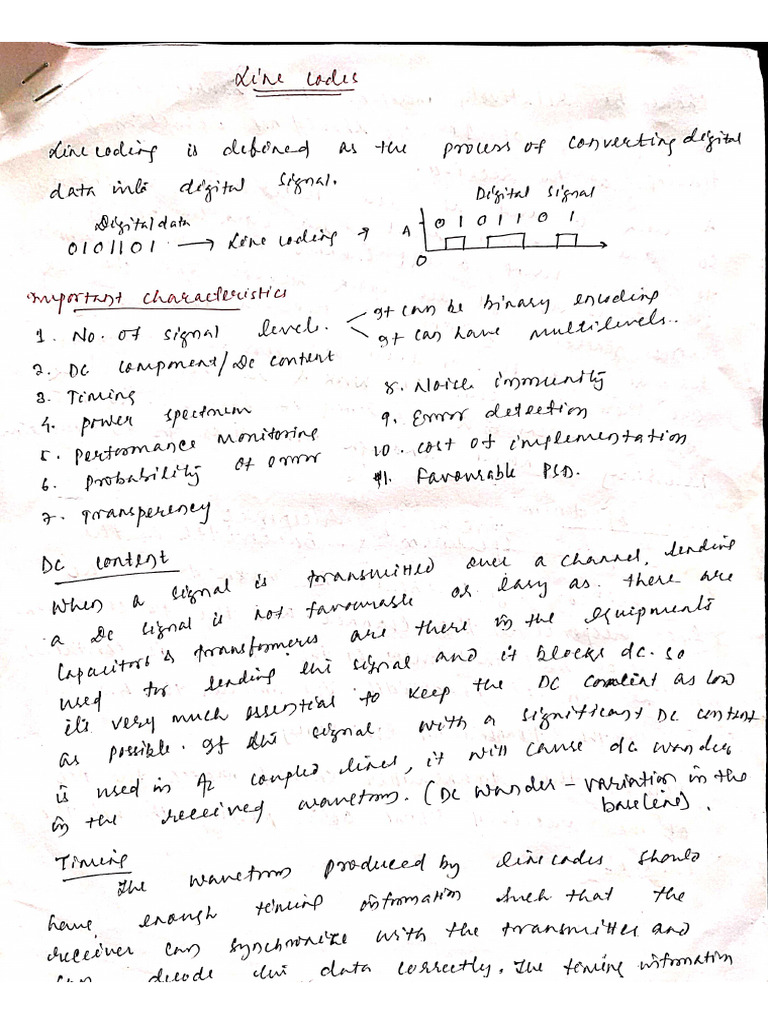 Line codes
Line coding is defined as the process of converting digital
data into digital signal.
Digital signal
Digital data
0101101 → Line coding →
A
0 1 0 1 1 0 1
0
Important characteristics
1. No. of signal levels.
It can be binary encoding
It can have multilevels..
2. DC component/Dc content
3. Timing
4. Power spectrum
5. Performance monitoring
6. Probability of error
7. Transperency
8. Noise immunity
9. Error detection
10. Cost of implementation
11. Favourable PSD.
DC content
When a signal is transmitted over a channel, sending
a Dc signal is not favourable or easy as there are
Capacitors & transformers are there in the equipments
used for sending the signal and it blocks dc. so
it's very much essential to keep the DC content as low
as possible. If the signal with a significant DC content
is used in Ac coupled lines, it will cause dc wander
in the received waveform. (DC wander – variation in the
baseline).
Timing
The waveform produced by line codes should
have enough timing information such that the
receiver can synchronize with the transmitter and
can decode the data correctly. The timing information